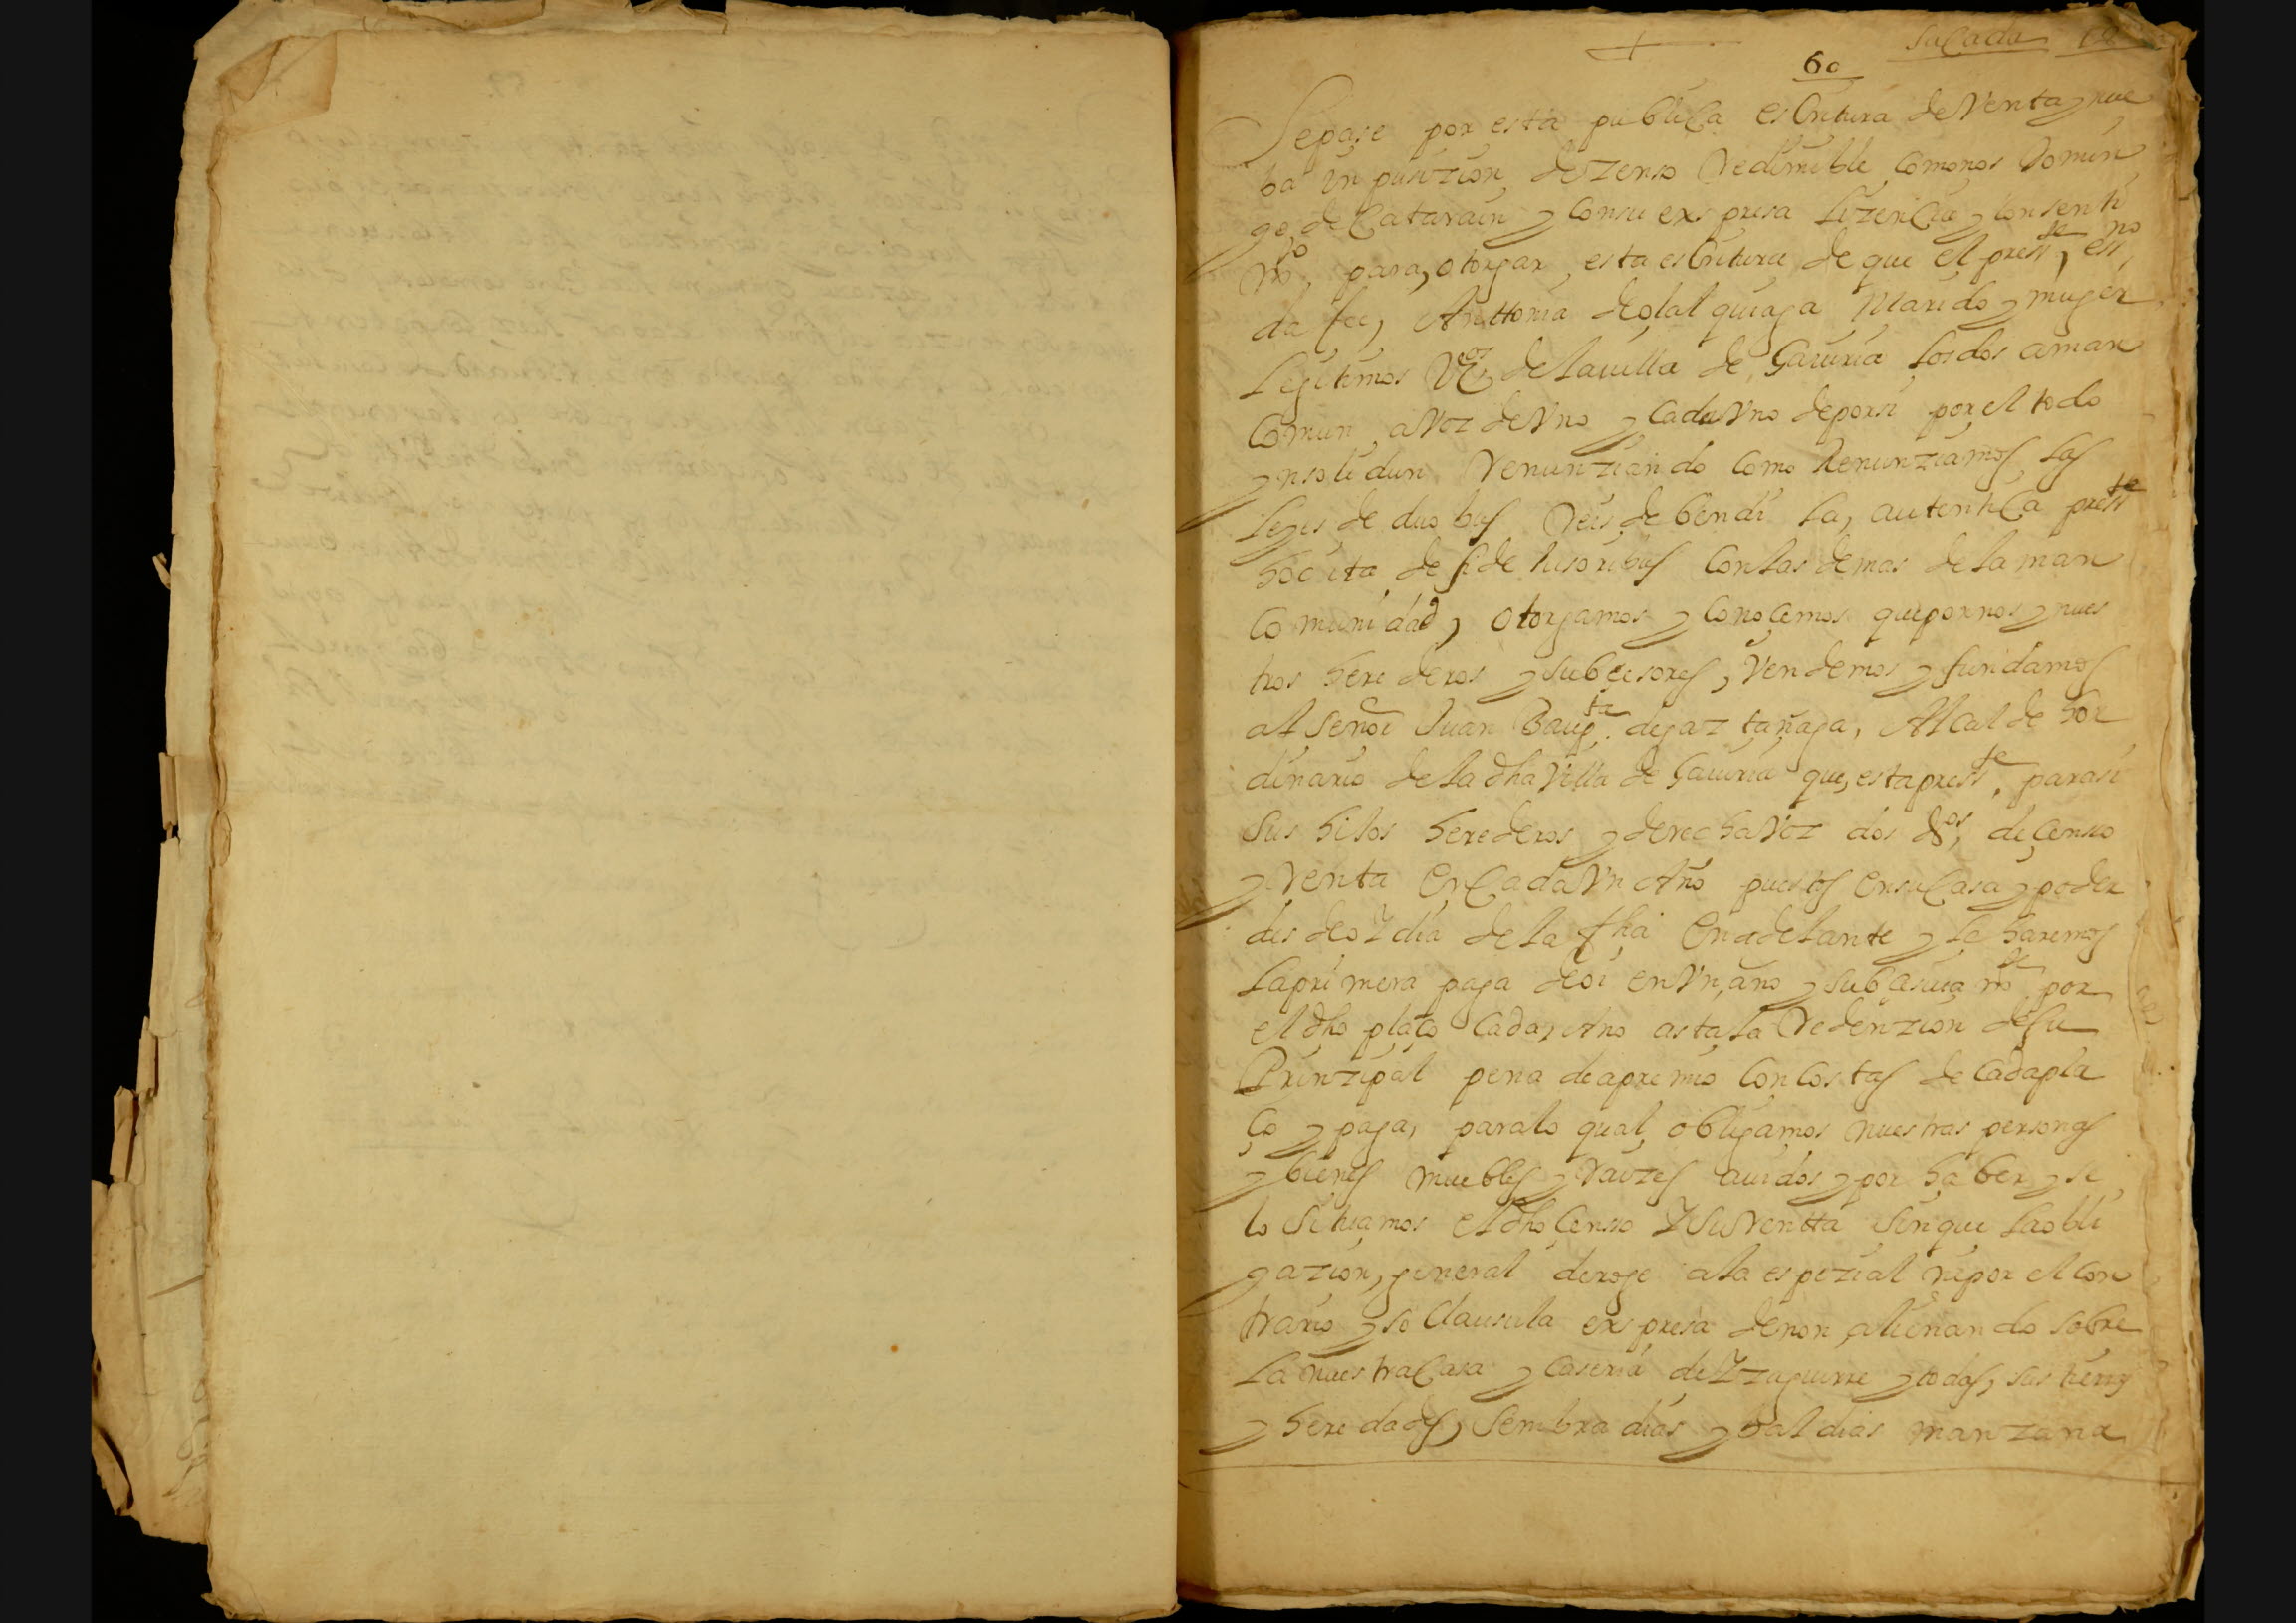 Sacada
60
Sepase por esta publica escritura de Venta y nue
ba ynpusizion de zenso Redimible como nos Domin
go de Catarain y con su expresa lizencia y consenti
mto. para, otorgar esta escritura de que el presste, essno
da fee, Anttonia de olalquiaga Marido y muger
Legitimos Vezos de la villa de Gauiria los dos a man
Comun a Voz de Vno y Cada Vno de por si por el todo
ynsolidun Renunziando como Renunziamos las
leyes de duobus Reis debendi la, autentica presste
hocita de fide lusoribus con las demas de la man
Comunidad, otorgamos y conocemos que por nos y nues
tros herederos y subcesores, Vendemos y fundamos
al Señor Juan Baupta. de gaztañaga, Alcalde hor
dinario de la dha Villa de Gauiria que, esta presste. para si
sus hijos herederos y derecha Voz dos dos, de censso
y Renta En Cada Vn Año puestos en su Casa y poder
desde oy dia de la fha En adelante y le haremos
la primera paga de oi en Vn, año y subcesiuamte por
el dho plaço Cada, Año asta la Redenzion de su
Prinzipal pena de apremio con costas de cada pla
ço y paga, para lo qual obligamos nuestras personas
y bienes muebles y Raizes auidos y por haber y se
lo situamos el dho Censso y su Rentta sin que la obli
gazion, general deroge a la espezial ni por el con
trario y so clausula expresa de non, alienando sobre
la nuestra Casa y caseria de Yzaguirre y todas, sus tierras
y heredades, Sembradias y baldias manzana